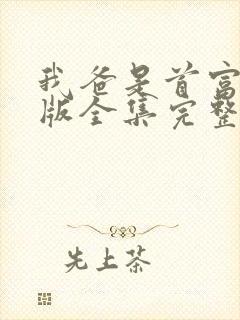 我爸是首富
版全集完整
先上茶